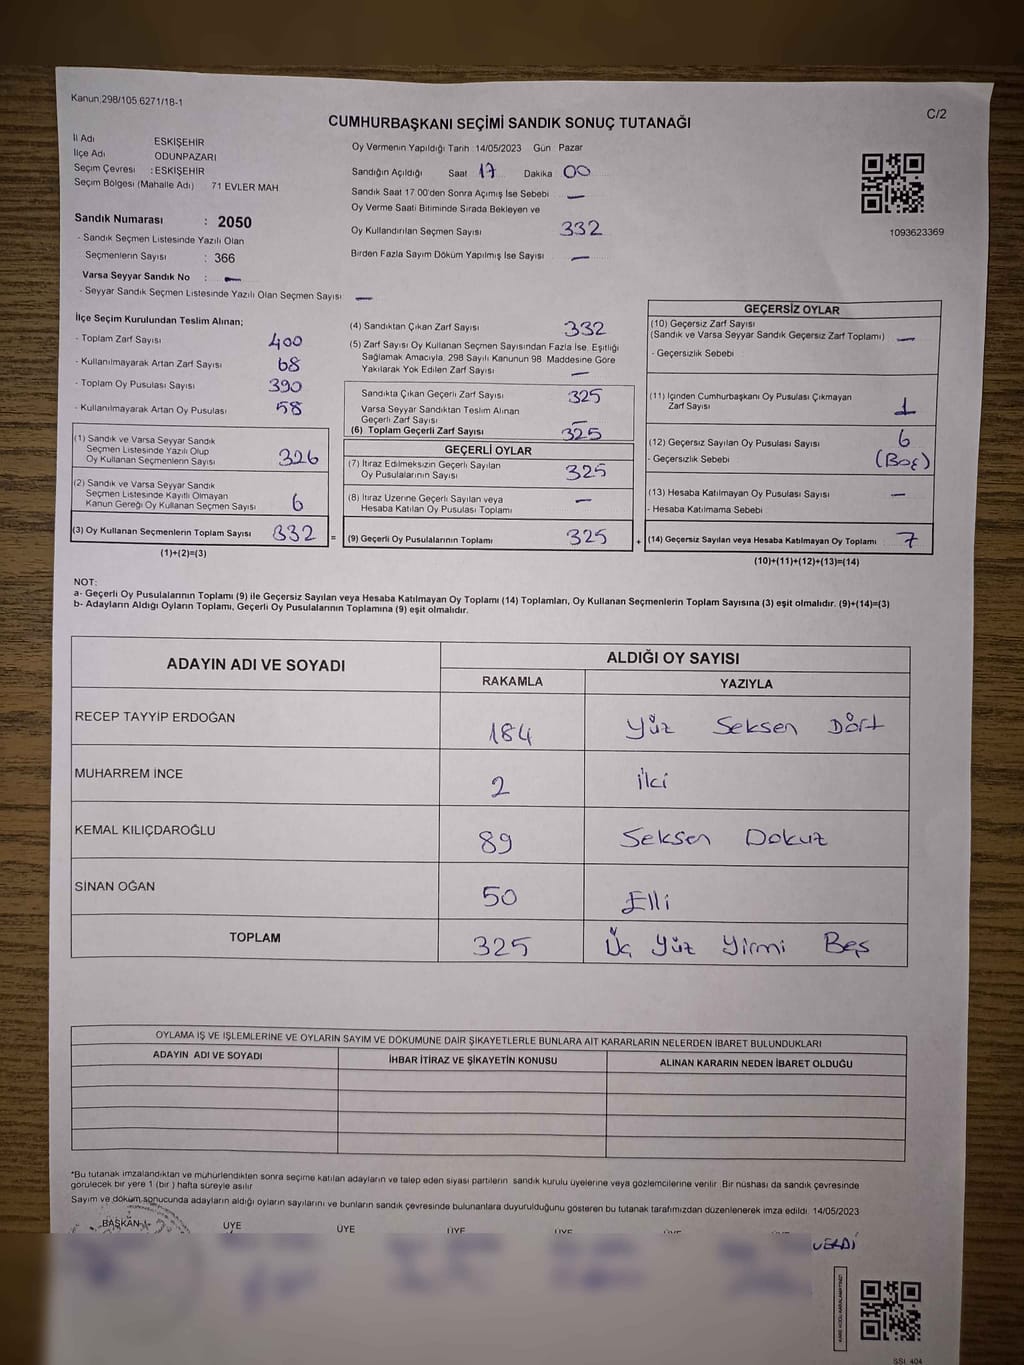 Kanun,298/105 6271/18-1
C/2
CUMHURBAŞKANI SEÇİMİ SANDIK SONUÇ TUTANAĞI
İl Adı ESKİŞEHİR
İlçe Adı ODUNPAZARI
Seçim Çevresi : ESKİŞEHİR
Seçim Bölgesi (Mahalle Adı) 71 EVLER MAH
Sandık Numarası : 2050
- Sandık Seçmen Listesinde Yazılı Olan
Seçmenlerin Sayısı : 366
Varsa Seyyar Sandık No : —
- Seyyar Sandık Seçmen Listesinde Yazılı Olan Seçmen Sayısı: —
Oy Vermenin Yapıldığı Tarih : 14/05/2023 Gün : Pazar
Sandığın Açıldığı Saat 17 Dakika 00
Sandık Saat 17:00'den Sonra Açımış İse Sebebi —
Oy Verme Saati Bitiminde Sırada Bekleyen ve
Oy Kullandırılan Seçmen Sayısı 332
Birden Fazla Sayım Döküm Yapılmış İse Sayısı —
1093623369
İlçe Seçim Kurulundan Teslim Alınan;
- Toplam Zarf Sayısı 400
- Kullanılmayarak Artan Zarf Sayısı 68
- Toplam Oy Pusulası Sayısı 390
- Kullanılmayarak Artan Oy Pusulası 58
(1) Sandık ve Varsa Seyyar Sandık
Seçmen Listesinde Yazılı Olup
Oy Kullanan Seçmenlerin Sayısı 326
(2) Sandık ve Varsa Seyyar Sandık
Seçmen Listesinde Kayıtlı Olmayan
Kanun Gereği Oy Kullanan Seçmen Sayısı 6
(3) Oy Kullanan Seçmenlerin Toplam Sayısı 332 =
(1)+(2)=(3)
(4) Sandıktan Çıkan Zarf Sayısı 332
(5) Zarf Sayısı Oy Kullanan Seçmen Sayısından Fazla İse, Eşitliği
Sağlamak Amacıyla, 298 Sayılı Kanunun 98. Maddesine Göre
Yakılarak Yok Edilen Zarf Sayısı —
Sandıkta Çıkan Geçerli Zarf Sayısı 325
Varsa Seyyar Sandıktan Teslim Alınan
Geçerli Zarf Sayısı —
(6) Toplam Geçerli Zarf Sayısı 325
GEÇERLİ OYLAR
(7) İtiraz Edilmeksizin Geçerli Sayılan
Oy Pusulalarının Sayısı 325
(8) İtiraz Üzerine Geçerli Sayılan veya
Hesaba Katılan Oy Pusulası Toplamı —
(9) Geçerli Oy Pusulalarının Toplamı 325 +
GEÇERSİZ OYLAR
(10) Geçersiz Zarf Sayısı
(Sandık ve Varsa Seyyar Sandık Geçersiz Zarf Toplamı) —
- Geçersizlik Sebebi
(11) İçinden Cumhurbaşkanı Oy Pusulası Çıkmayan
Zarf Sayısı 1
(12) Geçersiz Sayılan Oy Pusulası Sayısı 6
- Geçersizlik Sebebi (Boş)
(13) Hesaba Katılmayan Oy Pusulası Sayısı —
- Hesaba Katılmama Sebebi
(14) Geçersiz Sayılan veya Hesaba Katılmayan Oy Toplamı 7
(10)+(11)+(12)+(13)=(14)
NOT:
a- Geçerli Oy Pusulalarının Toplamı (9) ile Geçersiz Sayılan veya Hesaba Katılmayan Oy Toplamı (14) Toplamları, Oy Kullanan Seçmenlerin Toplam Sayısına (3) eşit olmalıdır. (9)+(14)=(3)
b- Adayların Aldığı Oyların Toplamı, Geçerli Oy Pusulalarının Toplamına (9) eşit olmalıdır.
ADAYIN ADI VE SOYADI ALDIĞI OY SAYISI
RAKAMLA YAZIYLA
RECEP TAYYİP ERDOĞAN 184 Yüz Seksen Dört
MUHARREM İNCE 2 İki
KEMAL KILIÇDAROĞLU 89 Seksen Dokuz
SİNAN OĞAN 50 Elli
TOPLAM 325 Üç Yüz Yirmi Beş
OYLAMA İŞ VE İŞLEMLERİNE VE OYLARIN SAYIM VE DÖKÜMÜNE DAİR ŞİKAYETLERLE BUNLARA AİT KARARLARIN NELERDEN İBARET BULUNDUKLARI
ADAYIN ADI VE SOYADI İHBAR İTİRAZ VE ŞİKAYETİN KONUSU ALINAN KARARIN NEDEN İBARET OLDUĞU
*Bu tutanak imzalandıktan ve mühürlendikten sonra seçime katılan adayların ve talep eden siyasi partilerin sandık kurulu üyelerine veya gözlemcilerine verilir. Bir nüshası da sandık çevresinde
görülecek bir yere 1 (bir ) hafta süreyle asılır
Sayım ve döküm sonucunda adayların aldığı oyların sayılarını ve bunların sandık çevresinde bulunanlara duyurulduğunu gösteren bu tutanak tarafımızdan düzenlenerek imza edildi. 14/05/2023
BAŞKAN ÜYE ÜYE ÜYE ÜYE
VERDİ
SSİ. 404